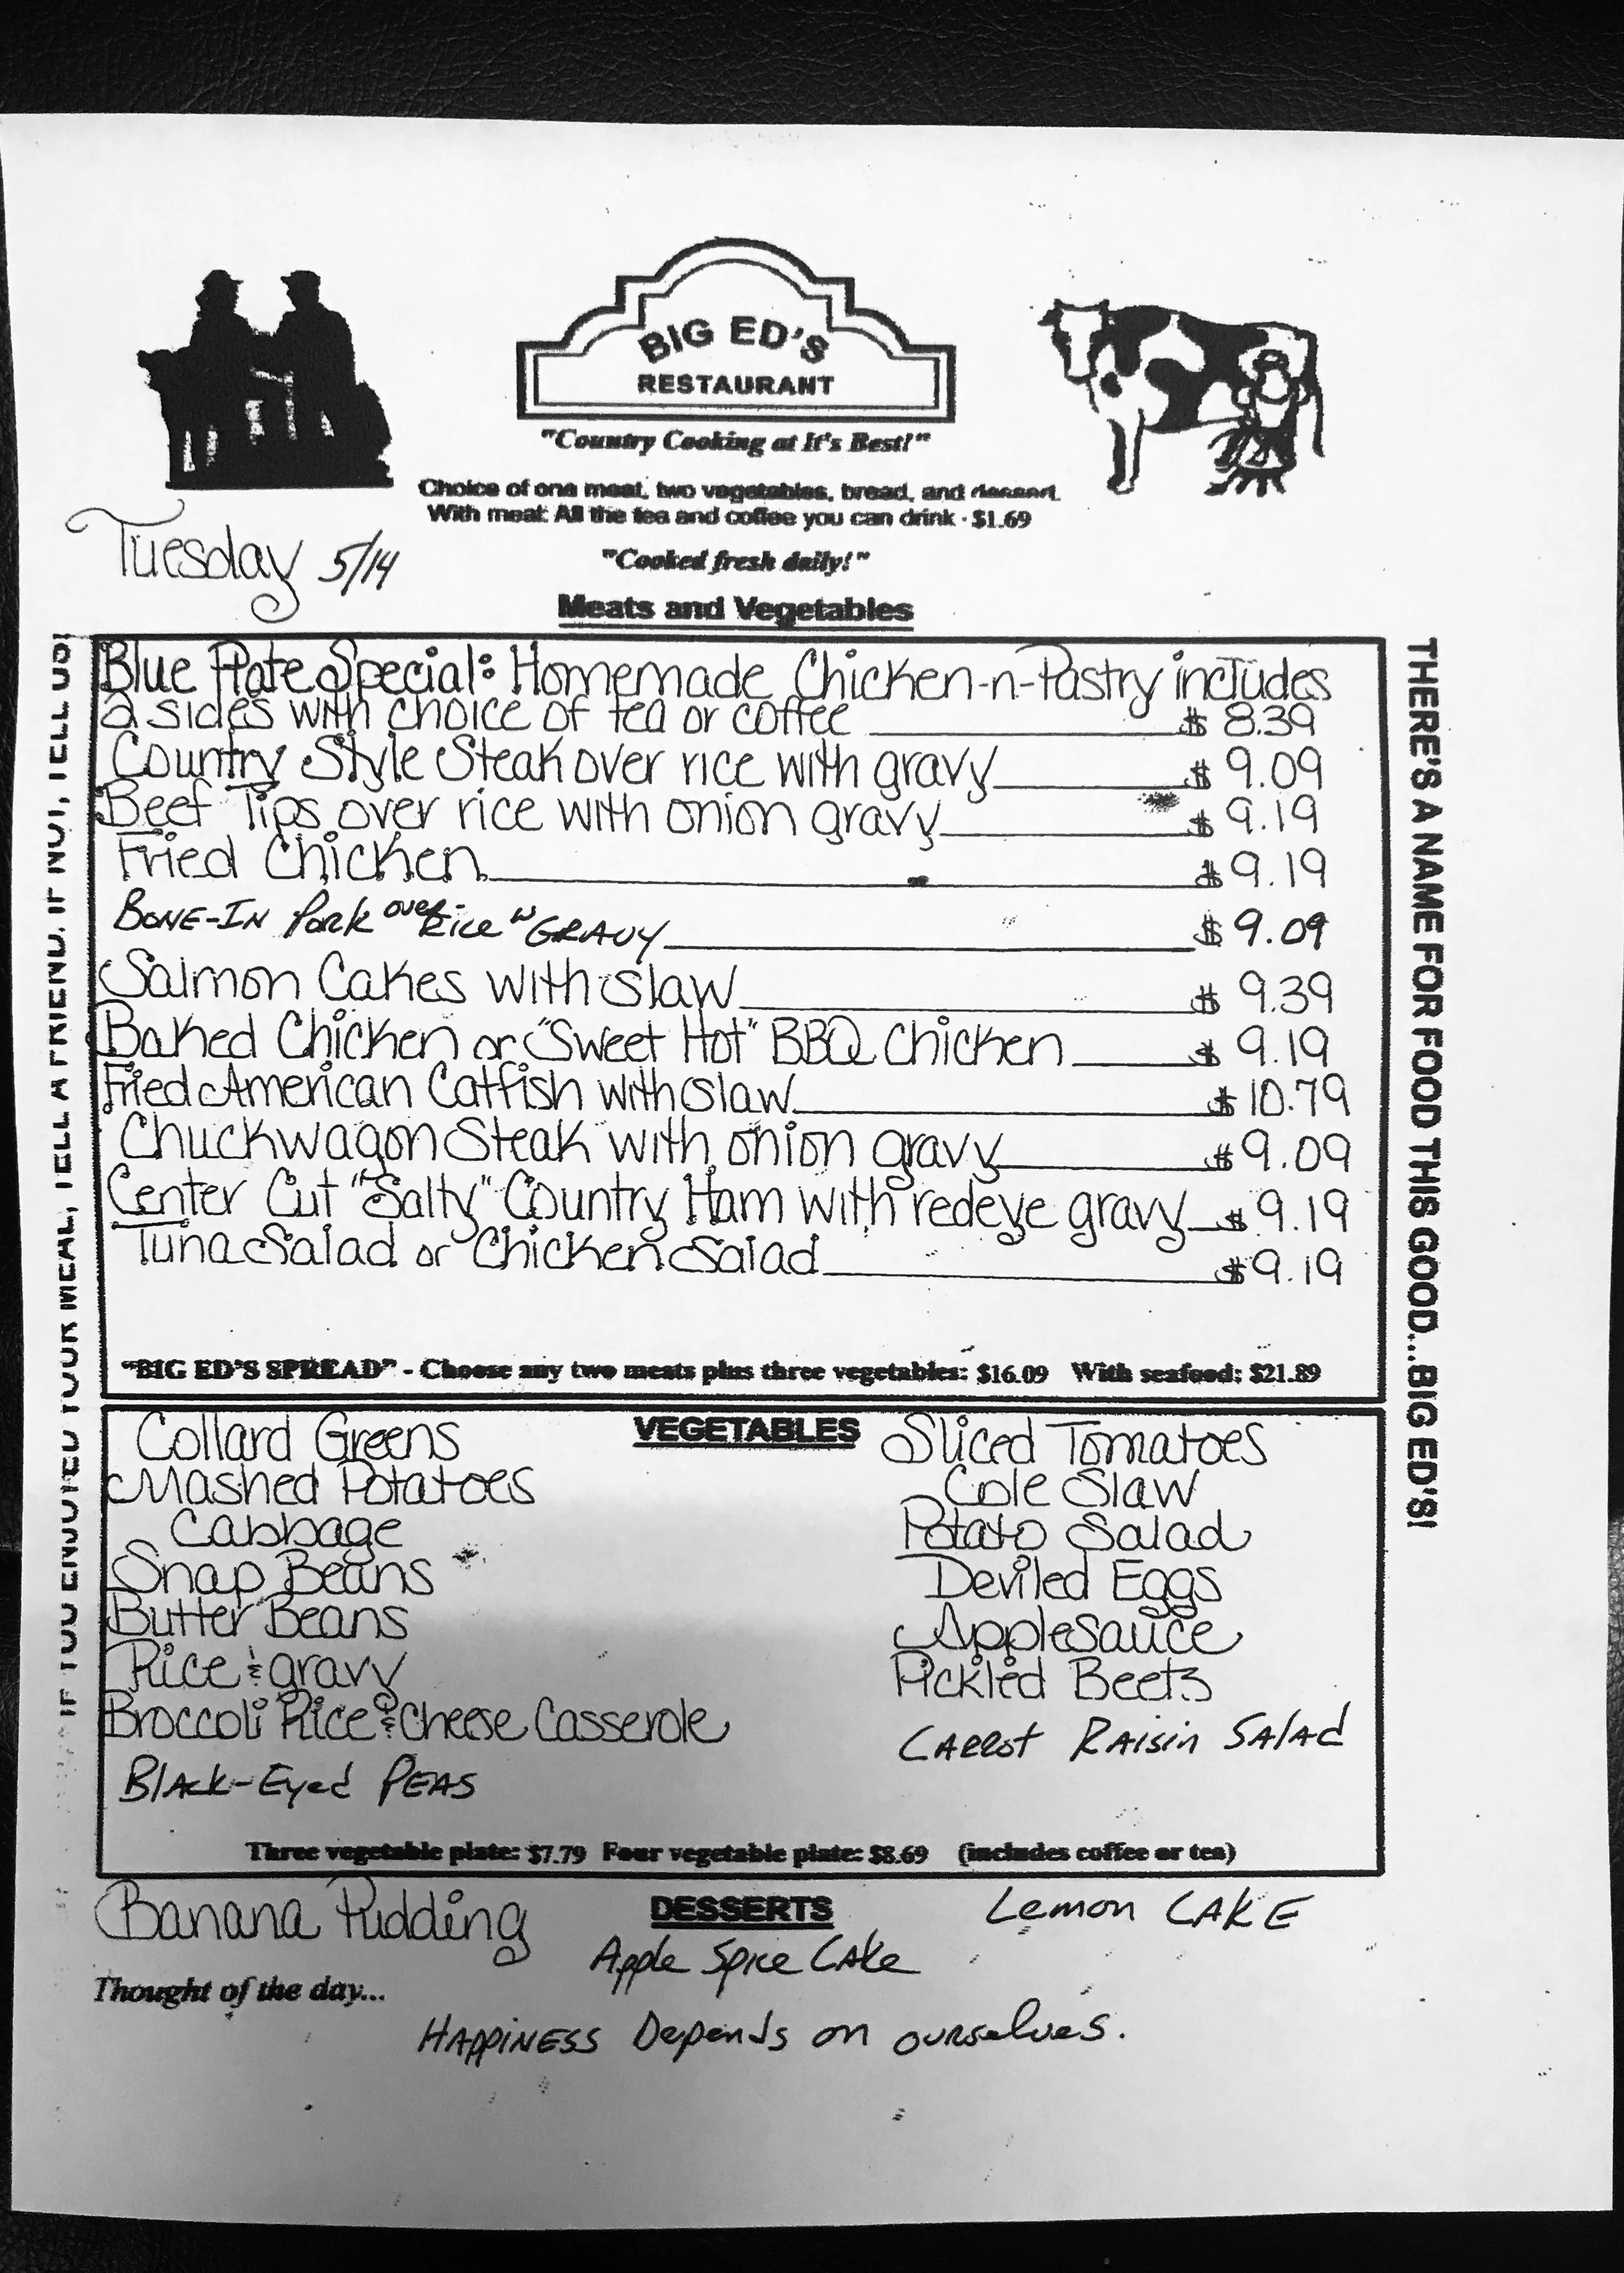 BIG ED'S
RESTAURANT
"Country Cooking at It's Best!"
Choice of one meat, two vegetables, bread, and dessert.
With meat: All the tea and coffee you can drink - $1.69
Tuesday 5/14
"Cooked fresh daily!"
Meats and Vegetables
Blue Plate Special: Homemade Chicken-n-Pastry includes
2 sides with choice of tea or coffee $ 8.39
Country Style Steak over rice with gravy $ 9.09
Beef Tips over rice with onion gravy $ 9.19
Fried Chicken $ 9.19
BONE-IN Pork over Rice w GRAVY $ 9.09
Salmon Cakes with slaw $ 9.39
Baked Chicken or "Sweet Hot" BBQ Chicken $ 9.19
Fried American Catfish with slaw $ 10.79
Chuckwagon Steak with onion gravy $ 9.09
Center Cut "Salty" Country Ham with redeye gravy $ 9.19
Tuna Salad or Chicken Salad $ 9.19
"BIG ED'S SPREAD" - Choose any two meats plus three vegetables: $16.09 With seafood: $21.89
VEGETABLES
Collard Greens
Mashed Potatoes
Cabbage
Snap Beans
Butter Beans
Rice & gravy
Broccoli Rice & Cheese Casserole
Black-Eyed PEAS
Sliced Tomatoes
Cole Slaw
Potato Salad
Deviled Eggs
Applesauce
Pickled Beets
Carrot Raisin Salad
Three vegetable plate: $7.79 Four vegetable plate: $8.69 (includes coffee or tea)
DESSERTS
Banana Pudding
Apple Spice Cake
Lemon CAKE
Thought of the day...
HAPPINESS Depends on ourselves.
IF YOU ENJOYED YOUR MEAL, TELL A FRIEND. IF NOT, TELL US!
THERE'S A NAME FOR FOOD THIS GOOD...BIG ED'S!